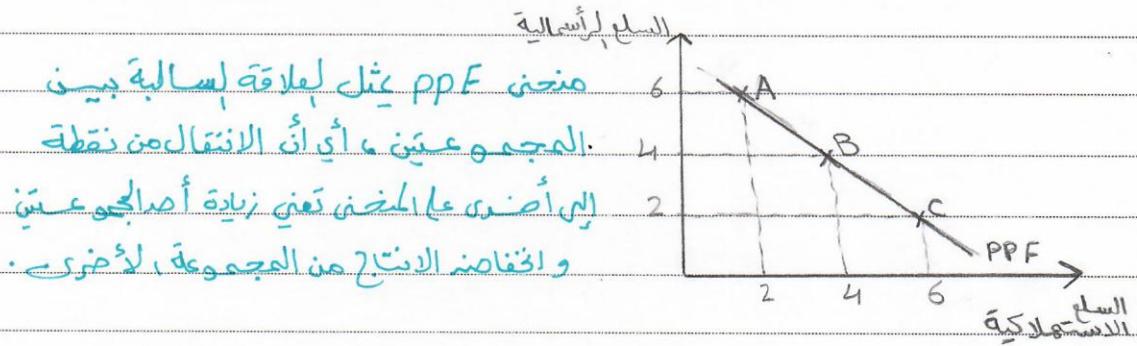 السلع الرأسمالية
منحنى PPF يمثل العلاقة السالبة بين
المجموعتين، أي أن الانتقال من نقطة
إلى أخرى على المنحنى تعني زيادة أحد المجموعتين
و انخفاض الانتاج من المجموعة الأخرى.
6
4
2
A
B
C
PPF
2 4 6
السلع
الاستهلاكية